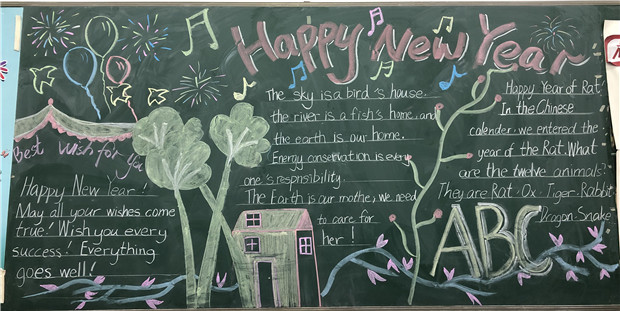 Happy New Year
Best Wish for You
Happy New Year!
May all your wishes come
true! Wish you every
success! Everything
goes well!
The sky is a bird's house.
the river is a fish's home, and
the earth is our home.
Energy conservation is every
one's respnsibility.
The Earth is our mother, we need
to care for
her!
Happy Year of Rat!
In the Chinese
calender. we entered the
year of the Rat. What
are the twelve animals?
They are Rat·Ox·Tiger·Rabbit
Dragon·Snake
ABC